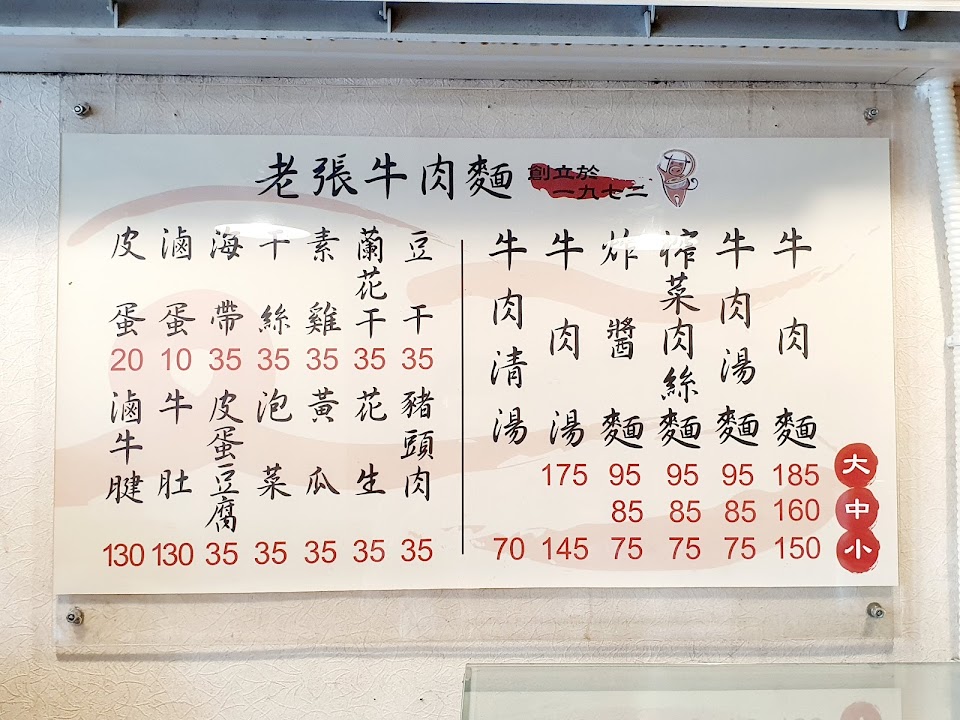 老張牛肉麵
創立於
一九七二
大
中
小
牛肉麵
185
160
150
牛肉湯麵
95
85
75
榨菜肉絲麵
95
85
75
炸醬麵
95
85
75
牛肉湯
175
145
牛肉清湯
70
豆干
35
蘭花干
35
素雞
35
干絲
35
海帶
35
滷蛋
10
皮蛋
20
豬頭肉
35
花生
35
黃瓜
35
泡菜
35
皮蛋豆腐
35
牛肚
130
滷牛腱
130